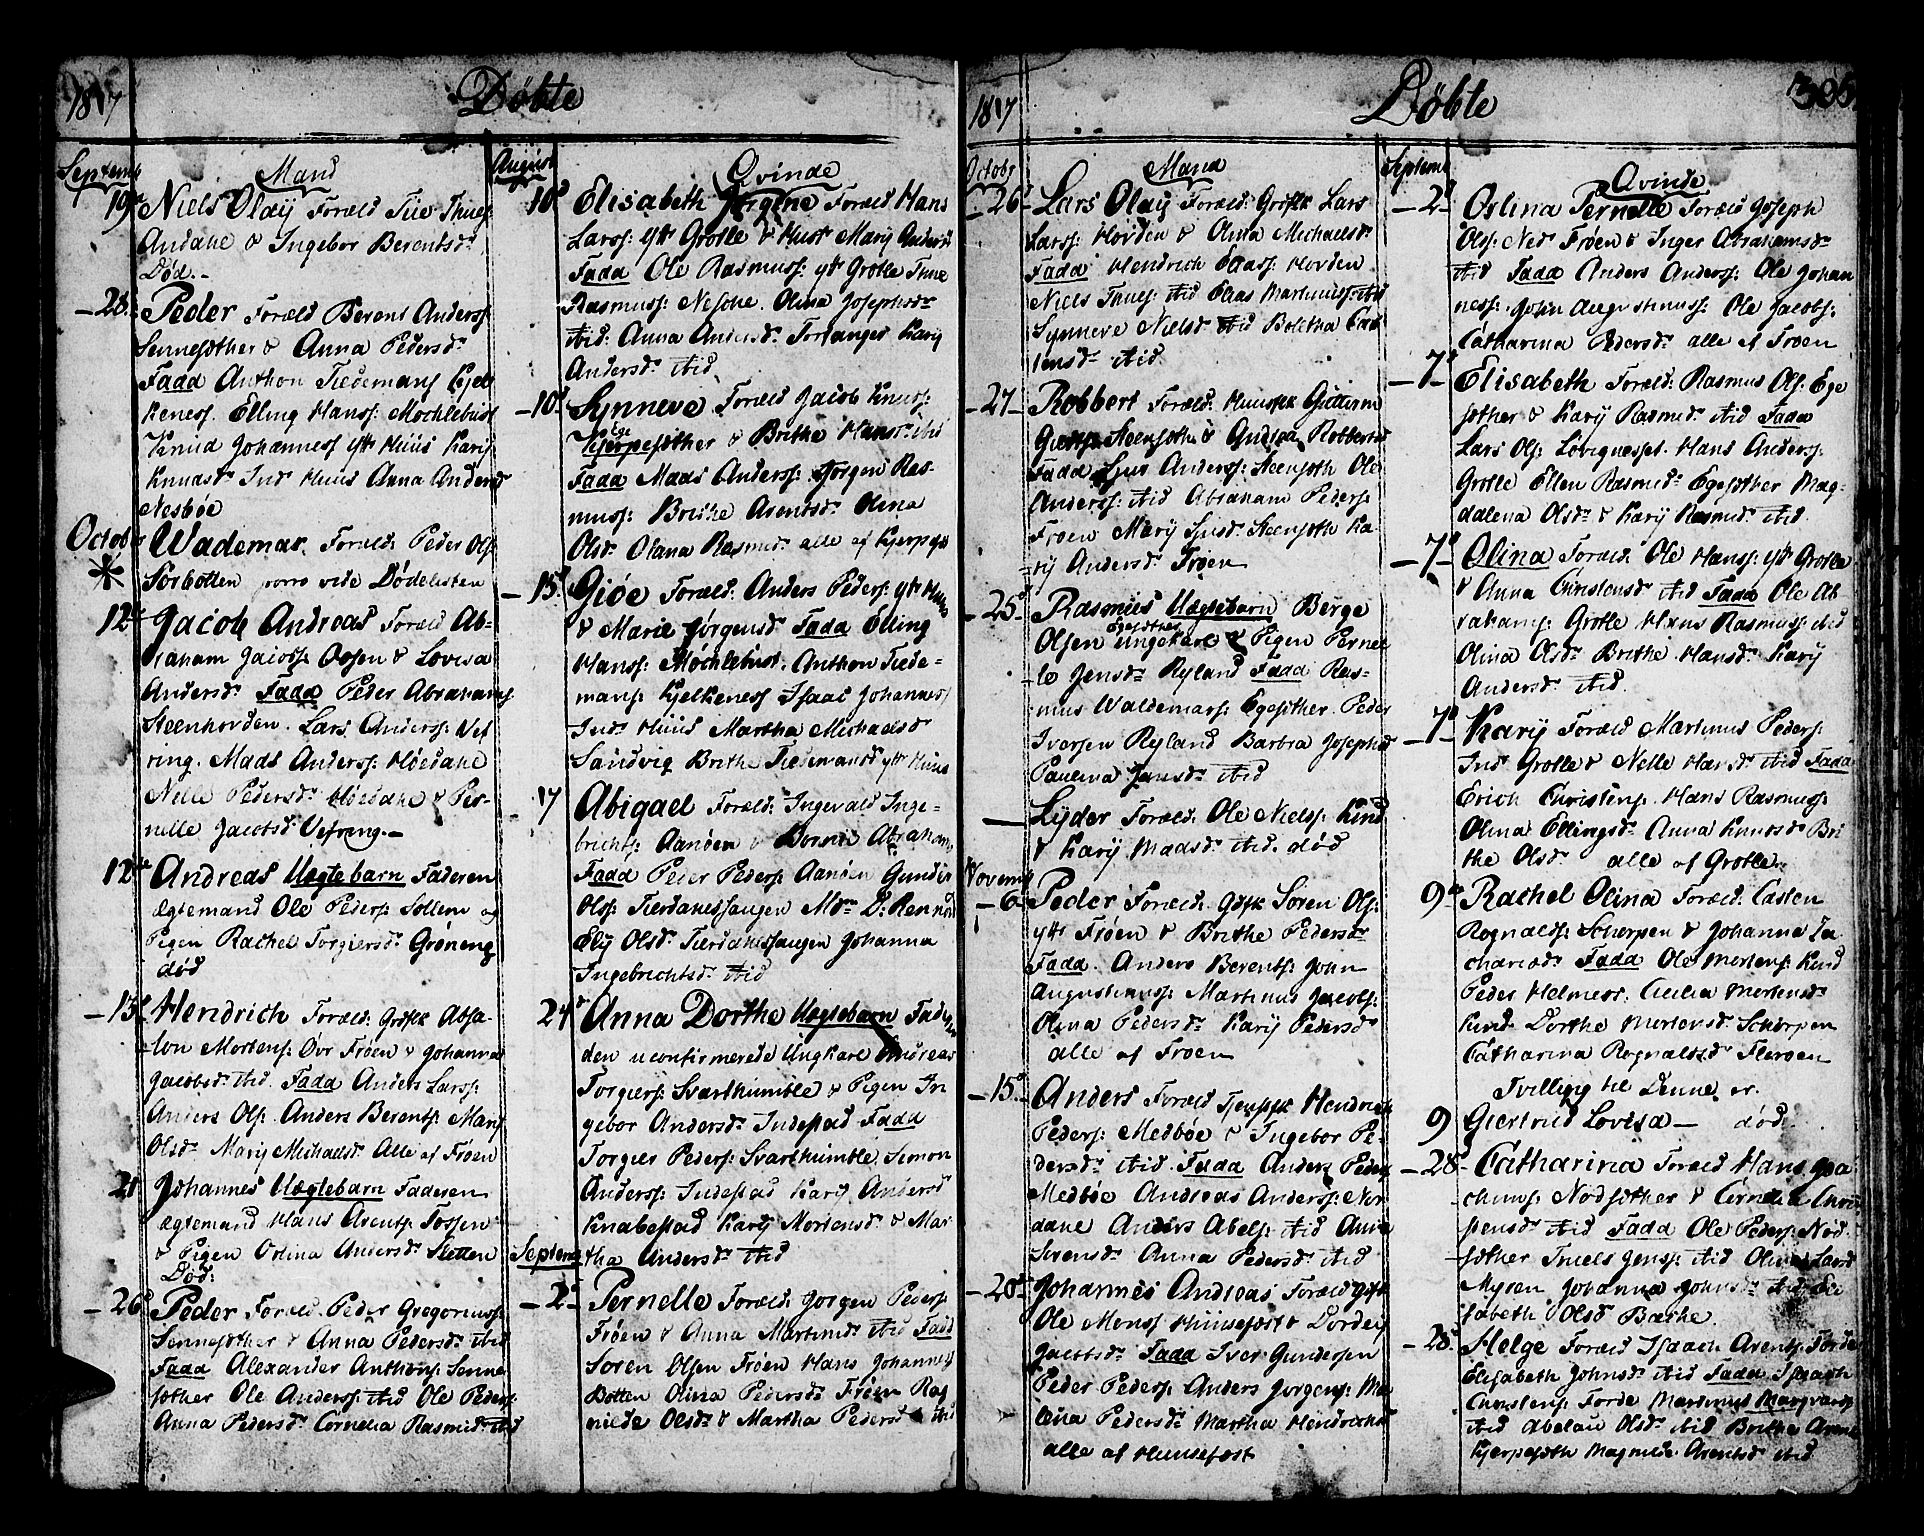 1817
Döbte
Septemb
Mand
19de Niels Olaij Foræld Tüe Thues:
Andahl & Ingebor Berentsdr
Död.-
28. Peder Foræld Berent Anderss:
Sennesöther & Anna Pedersdr
Fadd Anthon Tiedemans Kjel
keness. Elling Hanss: Mochlebust
Knud Johanness ytr Huus Kary
Knudsdr Ind Huus Anna Andersd
Nesböe
Octob
Wademar. Foræld: Peder Ols:
Sorbotten porro vide Dödelisten
12te Jacob Andreas Foræld Ab-
raham Jacobs: Ossen & Lovisa
Andersdr Fadd Peder Abrahams
Steenhovden. Lars Anderss: Vef
ring. Mads Anderss: Höedahl
Nelle Pedersdr Höedahl & Per-
nelle Jacobsd: Vefreng.-
12te Andreas Uægtebarn Faderen
ægtemand Ole Peders: Sollem og
Pigen Rachel Torgiersdr Gröneng
död
13. Hendrich Foræld: Gdfk Absa-
lon Mortens: Övr Fröen & Johanna
Jacobsdr ibid. Fadd Anders Larss:
Anders Ols: Anders Berents: Mary
Olsdr Mary Michaelsd: Alle af Fröen
21 Johannes Uægtebarn Faderen
ægtemand Hans Arents: Tossen
& Pigen Oslina Andersdr Sletten
Död:
26. Peder Foræld. Peder Gregoriuss:
Sennesöther & Anna Pedersdr ibid
Fadd Alexander Anthons: Senne
söther Ole Anderss: ibid Ole Peders:
Anna Pedersdr Cornelia Rasmusdr ibid
August
Qvinde
10d Elisabeth Jorgine Foræld Hans
Larss: ytr Grotle & Hust Mary Andersd
Fadd Ole Rasmuss: ytr Grotle Thue
Rasmuss: Nesche. Olina Josephsdr
ibid: Anna Andersdr Torvanger Kary
Andersdr ibid
10d Synneve Foræld Jacob Knuss:
Ege
Kjerpesöther & Brithe Hansdr ibid
Fadd Maas Anderss: Jörgen Ras-
muss: Brithe Arentsdr Olina
Olsdr Olana Rasmusdr alle af Kjerpese
15. Giöe Foræld. Anders Peders: ytr Huus
& Marie Jörgensdr Fadd Elling
Hanss: Möchlebust. Anthon Tiede-
mans: Kjelkeness Isaac Johannes
Indr Huus Martha Michaelsdr
Sandvig Brithe Tiedemansdr ytr Huus
17 Abigael Foræld: Ingevald Inge-
brichts: Aanöen & Boreth Abrahams
Fadd Peder Peders: Aanöen Gunder
Ols: Tierdanishaugen
Ely Olsdr Tierdanishaugen Johanna
Ingebrichtsdr ibid
24. Anna Dorthe Uægtebarn Fad
den uconfirmerede Ungkarl Andreas
Torgiers: Svarthumble & Pigen In
gebor Andersdr Indestad Fadd
Torgier Peders: Svarthumble. Simon
Anderss: Indestad Kary Andersd
Knabestad Kary Mortensdr & Mar
Septemb
tha Andersdr ibid
2. Pernelle Foræld: Jorgen Peders:
Fröen & Anna Martinusdr ibid Fadd
Soren Olsen Fröen Hans Johanness
Botten Olina Pedersdr Fröen Rag
nilde Olsdr & Martha Pedersdr ibid
1817
Döbte
305.
Octobr
Mand
26 Lars Olaij Foræld: Gdfk Lars
Larss: Hovden & Anna Michaelsdr
Fadd Hendrich Claass: Hovden
Niels Thues: ibid Elias Martinuss: ibid
Synneve Nielsd ibid Bolitha Car
lensdr ibid.
27 Robbert Foræld: Huusfk Guttorm
Giærts: Steensöthe & Andrea Robbertsd
Fadd Sjur Anderss: Steensöth Ole
Anderss: ibid Abraham Peders
Fröen Mary Sjusdr Steensöth Ka-
ry Andersdr Fröen
25. Rasmus Uægtebarn Berge
Egesöther
Olsen ungekarl & Pigen Pernel
le Jensdr Ryland Fadd Ras-
mus Waldemars: Egesöther Peder
Iversen Ryland Barbra Josephsd
Paulina Jensdr ibid
Lyder Foræld: Ole Nielss: Kind
& Kary Madsdr ibid. död
Novemb
6. Peder Foræld. Gdfk Sören Ols:
ytr Fröen & Brithe Pedersdr
Fadd. Anders Berents: John
Augustinuss: Martinus Jacobs:
Olina Pedersdr Kary Pedersdr
alle af Fröen
15. Anders Foræld Tjenfk Hendrich
Peders: Medböe & Ingebor Pe-
dersdr ibid Fadd Anders Peders
Medböe Andreas Anderss: Nor
dahl Anders Abels: ibid Anna
Sörensdr Anna Pedersdr ibid
20d Johannes Andreas Foræld gdfk
Ole Monss Huusefæst & Dordei
Jacobsdr Fadd Iver Gundersen
Peder Peders: Anders Jorgens: Ma
lena Pedersdr Martha Hendrichsd
alle af Huusefæst
Septemb
Qvinde
2d Oslina Pernelle Foræld Joseph
Ols: Ned Fröen & Inger Abrahamsdr
ibid Fadd Anders Anderss: Ole Johan
ness: John Augustinuss: Ole Jacobs:
Catharina Pedersdr alle af Fröen
7d Elisabeth Foræld: Rasmus Ols: Ege
söther & Kary Rasmusdr ibid Fadd
Lars Ols: Lövignesset. Hans Anders:
Grotle Ellen Rasmusdr Egesöther Mag
dalena Olsdr & Kary Rasmusdr ibid.
7d Olina Foræld: Ole Hanss: ytr Grotle
& Anna Christensdr ibid Fadd Ole Ab
rahams: Grotle Hans Rasmuss: ibid
Olina Olsdr Brithe Hansdr Kary
Andersdr ibid.
7d Kary Foræld Martinus Peders:
Indr Grotle & Nelle Hansdr ibid Fadd
Erich Christens. Hans Rasmuss:
Olina Ellingsdr Anna Knudsdr Bri
the Olsdr alle af Grotle.
9de Rachel Olina Foræld Casten
Rognalds: Scherpen & Johanna Za
chariædr Fadd Ole Mortens: Kind
Peder Helmers: Cecilia Mortensdr
Kind Dorthe Mortensdr Scherpen
Catharina Rognaldsdr Fleröen
Tvilling til Denne er
9 Giertrud Lovisa — död.
28. Catharina Foræld Hans Joa
chums: Nödsöther & Cornelia Chri
pensdr ibid Fadd Ole Peders: Nöd
söther Truels Jenss: ibid Olina Larsd
Myren Johanna Johnsdr ibid Eli
sabeth Olsdr Barhe.
28. Helge Foræld Isaach Arents: Förde
Elisabeth Johnsdr ibid Fadd Isaach
Christens: Förde Martinus Marqvards
ibid Abelau Olsdr ibid Brithe Arne
Kjerpesöth Magnilde Arentsdr ibid